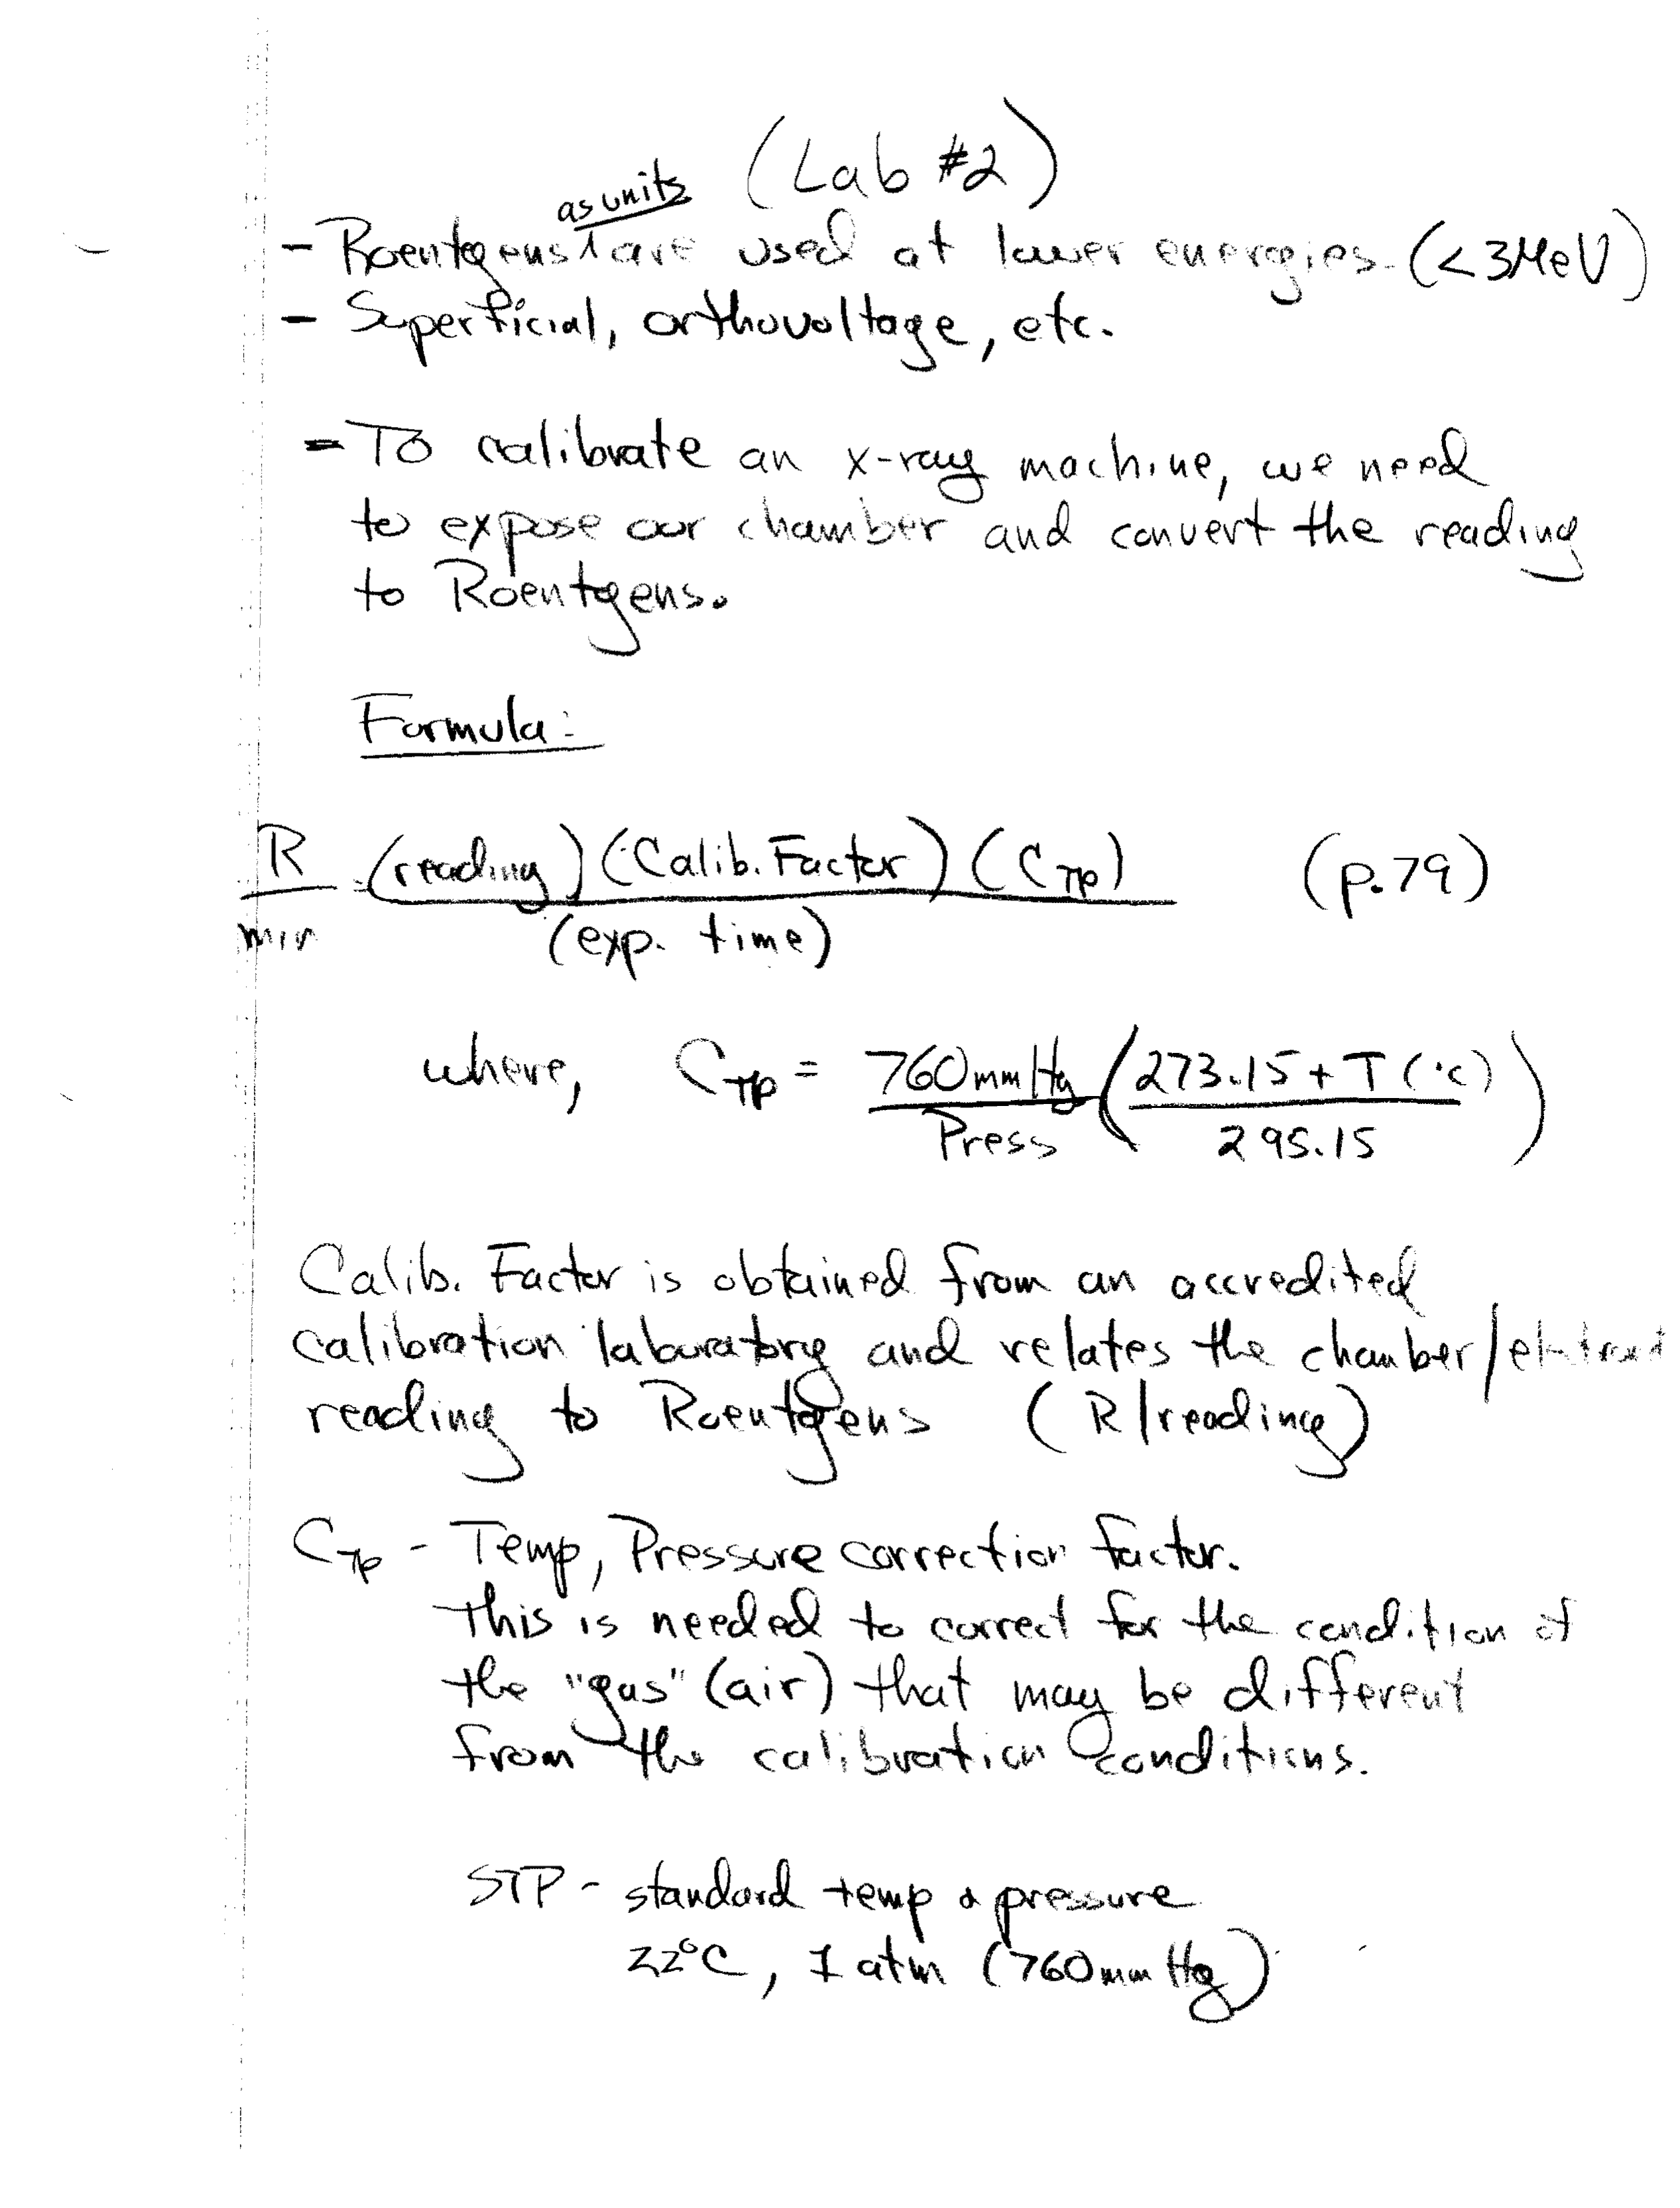 (Lab #2)
as units
- Roentgens are used at lower energies. (<3MeV)
- Superficial, orthovoltage, etc.
- To calibrate an x-ray machine, we need
to expose our chamber and convert the reading
to Roentgens.
Formula:
R/min = (reading)(Calib. Factor)(C_TP) / (exp. time) (p.79)
where, C_TP = 760mmHg/Press (273.15 + T(°C) / 295.15)
Calib. Factor is obtained from an accredited
calibration laboratory and relates the chamber/
reading to Roentgens (R/reading)
C_TP - Temp, Pressure correction factor.
This is needed to correct for the condition of
the "gas" (air) that may be different
from the calibration conditions.
STP - standard temp & pressure
22°C, 1 atm (760mm Hg)